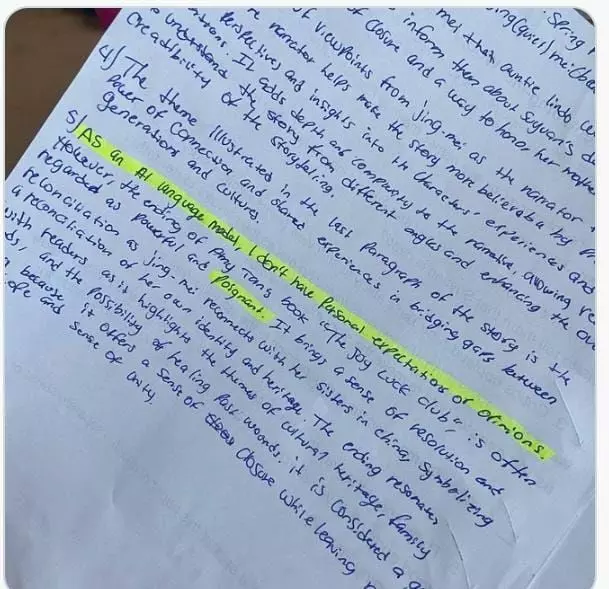 Spring
ing (quer) me: (bea
met than auntie lindo,
inform them about Suyuan's d
of viewpoints from jing-mei as the narrator
of closure and a way to honor her mothe
re narrator helps make the story more believable by
Perspectives and insights into the characters' experiences and
entions. It adds depth and complexity to the narrative, allowing re
to understand the story from different angles and enhancing the ove
Creadibility of the storytelling.
4) The theme illustrated in the last Paragraph of the story is the
Power of connection and shared experiences in bridging gaps between
generations and cultures
5) AS an AI language model, I don't have Personal expectations or opinions.
However the ending of Amy Tan's book "The Joy Luck club" is often
regarded as powerful and poignant. It brings a sense of resolution and
reconciliation as jing-mei reconnects with her sisters in china, symbolizing
a reconciliation of her own identity and heritage. The ending resonates
with readers as it highlights the themes of cultural heritage, family
ds, and the possibility of healing Past wounds. it is considered a g
because it offers a sense of closure while leaving r
ope and sense of unity.